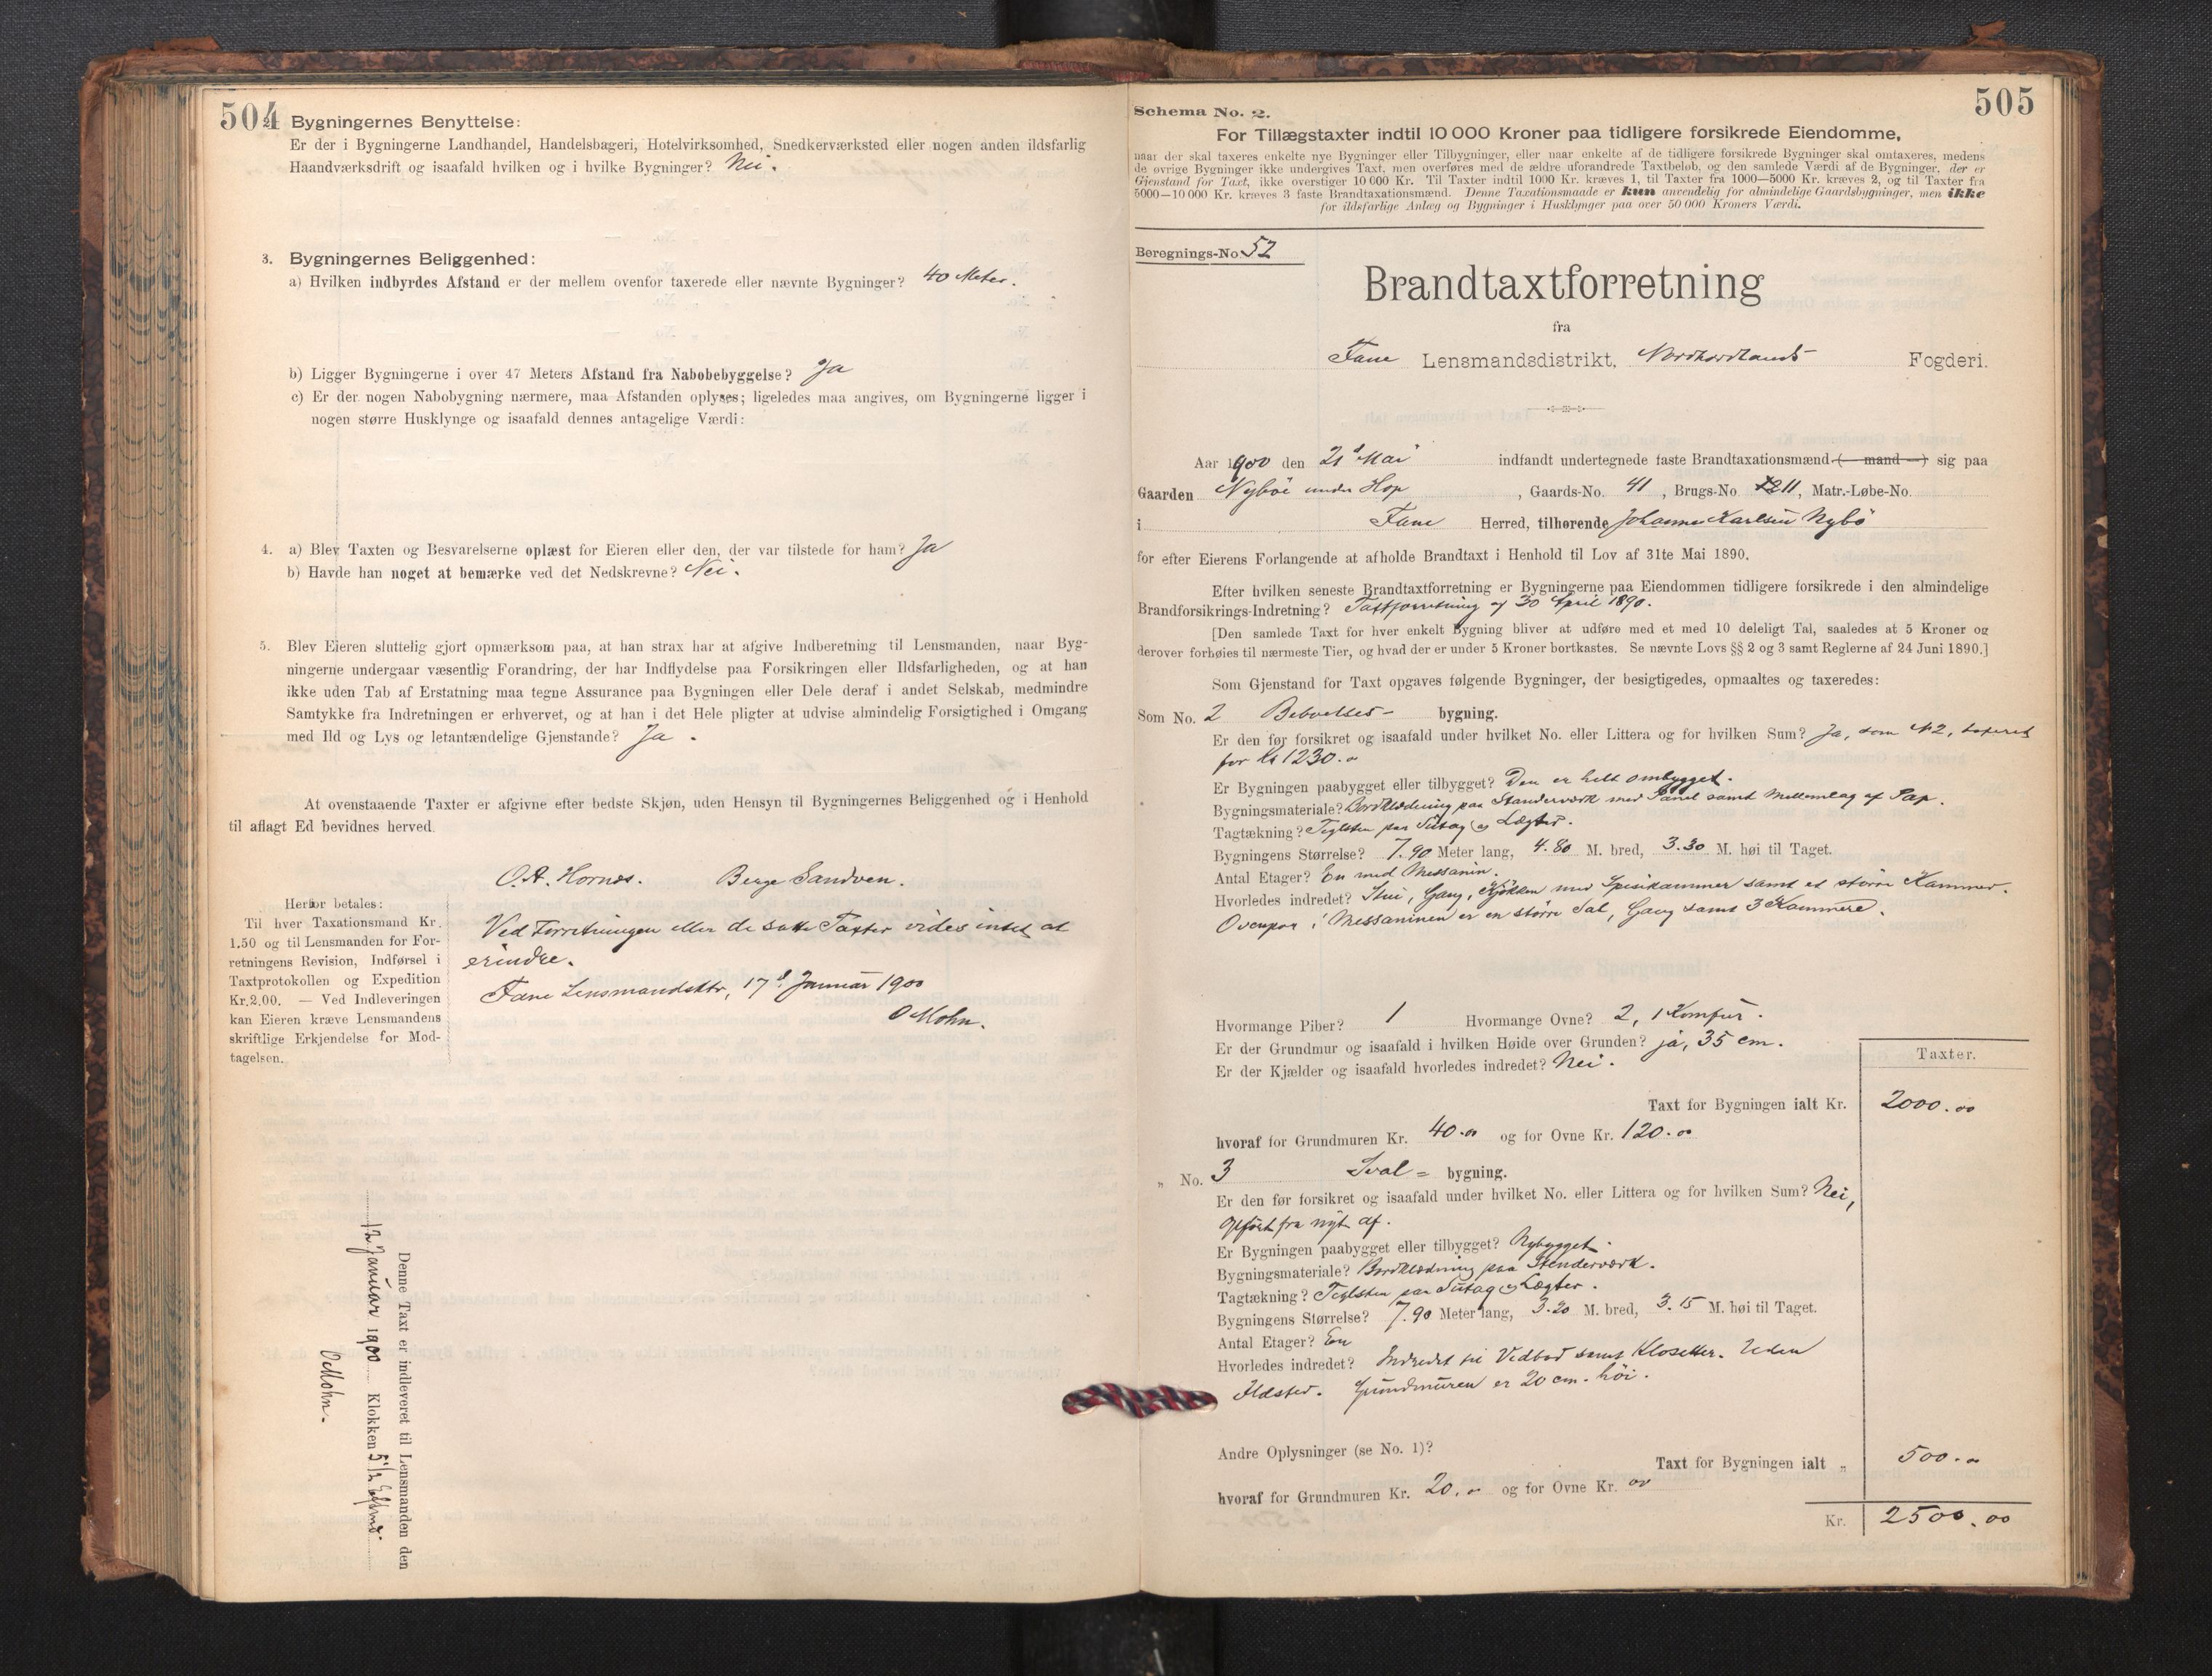 504
2. Bygningernes Benyttelse:
Er der i Bygningerne Landhandel, Handelsbageri, Hotelvirksomhed, Snedkerværksted eller nogen anden ildsfarlig
Haandværksdrift og isaafald hvilken og i hvilke Bygninger? Nei.
3. Bygningernes Beliggenhed:
a) Hvilken indbyrdes Afstand er der mellem ovenfor taxerede eller nævnte Bygninger? 40 Meter.
b) Ligger Bygningerne i over 47 Meters Afstand fra Nabobebyggelse? Ja
c) Er der nogen Nabobygning nærmere, maa Afstanden oplyses; ligeledes maa angives, om Bygningerne ligger i
nogen større Husklynge og isaafald dennes antagelige Værdi:
4. a) Blev Taxten og Besvarelserne oplæst for Eieren eller den, der var tilstede for ham? Ja
b) Havde han noget at bemærke ved det Nedskrevne? Nei.
5. Blev Eieren sluttelig gjort opmærksom paa, at han strax har at afgive Indberetning til Lensmanden, naar Byg-
ningerne undergaar væsentlig Forandring, der har Indflydelse paa Forsikringen eller Ildsfarligheden, og at han
ikke uden Tab af Erstatning maa tegne Assurance paa Bygningen eller Dele deraf i andet Selskab, medmindre
Samtykke fra Indretningen er erhvervet, og at han i det Hele pligter at udvise almindelig Forsigtighed i Omgang
med Ild og Lys og letantændelige Gjenstande? Ja.
At ovenstaaende Taxter er afgivne efter bedste Skjøn, uden Hensyn til Bygningernes Beliggenhed og i Henhold
til aflagt Ed bevidnes herved.
O. A. Hornæs. Berge Sandven.
Herfor betales:
Til hver Taxationsmand Kr.
1.50 og til Lensmanden for For-
retningens Revision, Indførsel i
Taxtprotokollen og Expedition
Kr. 2.00. — Ved Indleveringen
kan Eieren kræve Lensmandens
skriftlige Erkjendelse for Mod-
tagelsen.
Ved Forretningen eller de satte Taxter vides intet at
erindre.
Fane Lensmandsktr, 17d Januar 1900
O Mohn.
Denne Taxt er indleveret til Lensmanden den
12 Januar 1900 Klokken 5 1/2 Eftmd.
O Mohn.
505
Schema No. 2.
For Tillægstaxter indtil 10 000 Kroner paa tidligere forsikrede Eiendomme,
naar der skal taxeres enkelte nye Bygninger eller Tilbygninger, eller naar enkelte af de tidligere forsikrede Bygninger skal omtaxeres, medens
de øvrige Bygninger ikke undergives Taxt, men overføres med de ældre uforandrede Taxtbeløb, og den samlede Værdi af de Bygninger, der er
Gjenstand for Taxt, ikke overstiger 10 000 Kr. Til Taxter indtil 1000 Kr. kræves 1, til Taxter fra 1000—5000 Kr. kræves 2, og til Taxter fra
5000—10 000 Kr. kræves 3 faste Brandtaxationsmænd. Denne Taxationsmaade er kun anvendelig for almindelige Gaardsbygninger, men ikke
for ildsfarlige Anlæg og Bygninger i Husklynger paa over 50 000 Kroners Værdi.
Beregnings-No. 52
Brandtaxtforretning
fra
Fane Lensmandsdistrikt, Nordhordlands Fogderi.
Aar 1900 den 21d Mai indfandt undertegnede faste Brandtaxationsmænd (— mand —) sig paa
Gaarden Nybøe under Hop, Gaards-No. 41, Brugs-No. 11, Matr.-Løbe-No.
i Fane Herred, tilhørende Johannes Karlsen Nybø
for efter Eierens Forlangende at afholde Brandtaxt i Henhold til Lov af 31te Mai 1890.
Efter hvilken seneste Brandtaxtforretning er Bygningerne paa Eiendommen tidligere forsikrede i den almindelige
Brandforsikrings-Indretning? Taxtforretning af 30 April 1890.
[Den samlede Taxt for hver enkelt Bygning bliver at udføre med et med 10 deleligt Tal, saaledes at 5 Kroner og
derover forhøies til nærmeste Tier, og hvad der er under 5 Kroner bortkastes. Se nævnte Lovs §§ 2 og 3 samt Reglerne af 24 Juni 1890.]
Som Gjenstand for Taxt opgaves følgende Bygninger, der besigtigedes, opmaaltes og taxeredes:
Som No. 2 Beboelses- bygning.
Er den før forsikret og isaafald under hvilket No. eller Littera og for hvilken Sum? Ja, som N 2, taxeret
for Kr 1230.00
Er Bygningen paabygget eller tilbygget? Den er helt ombygget.
Bygningsmateriale? Bordklædning paa Standerværk med Panel samt Mellemlag af Pap.
Tagtækning? Teglsten paa Sutag og Lægter.
Bygningens Størrelse? 7.90 Meter lang, 4.80 M. bred, 3.30 M. høi til Taget.
Antal Etager? En med Messanin.
Hvorledes indredet? Stue, Gang, Kjøkken med Spisekammer samt et større Kammer.
Ovenpaa i Messaninen er en større Sal, Gang samt 3 Kammere.
Hvormange Piber? 1 Hvormange Ovne? 2, 1 Komfur.
Er der Grundmur og isaafald i hvilken Høide over Grunden? ja, 35 cm.
Er der Kjælder og isaafald hvorledes indredet? Nei.
Taxter.
Taxt for Bygningen ialt Kr. 2000.00
hvoraf for Grundmuren Kr. 40.00 og for Ovne Kr. 120.00
„ No. 3 Sval- bygning.
Er den før forsikret og isaafald under hvilket No. eller Littera og for hvilken Sum? Nei,
opført fra nyt af.
Er Bygningen paabygget eller tilbygget? Nybygget.
Bygningsmateriale? Bordklædning paa Stenderværk.
Tagtækning? Teglsten paa Sutag og Lægter.
Bygningens Størrelse? 7.90 Meter lang, 3.20 M. bred, 3.15 M. høi til Taget.
Antal Etager? En
Hvorledes indredet? Indredet til Vedbod samt Klosetter. Uden
Ildsted. Grundmuren er 20 cm. høi.
Andre Oplysninger (se No. 1)?
Taxt for Bygningen ialt „ 500.00
hvoraf for Grundmuren Kr. 20.00 og for Ovne Kr. 00
Kr. 2500.00